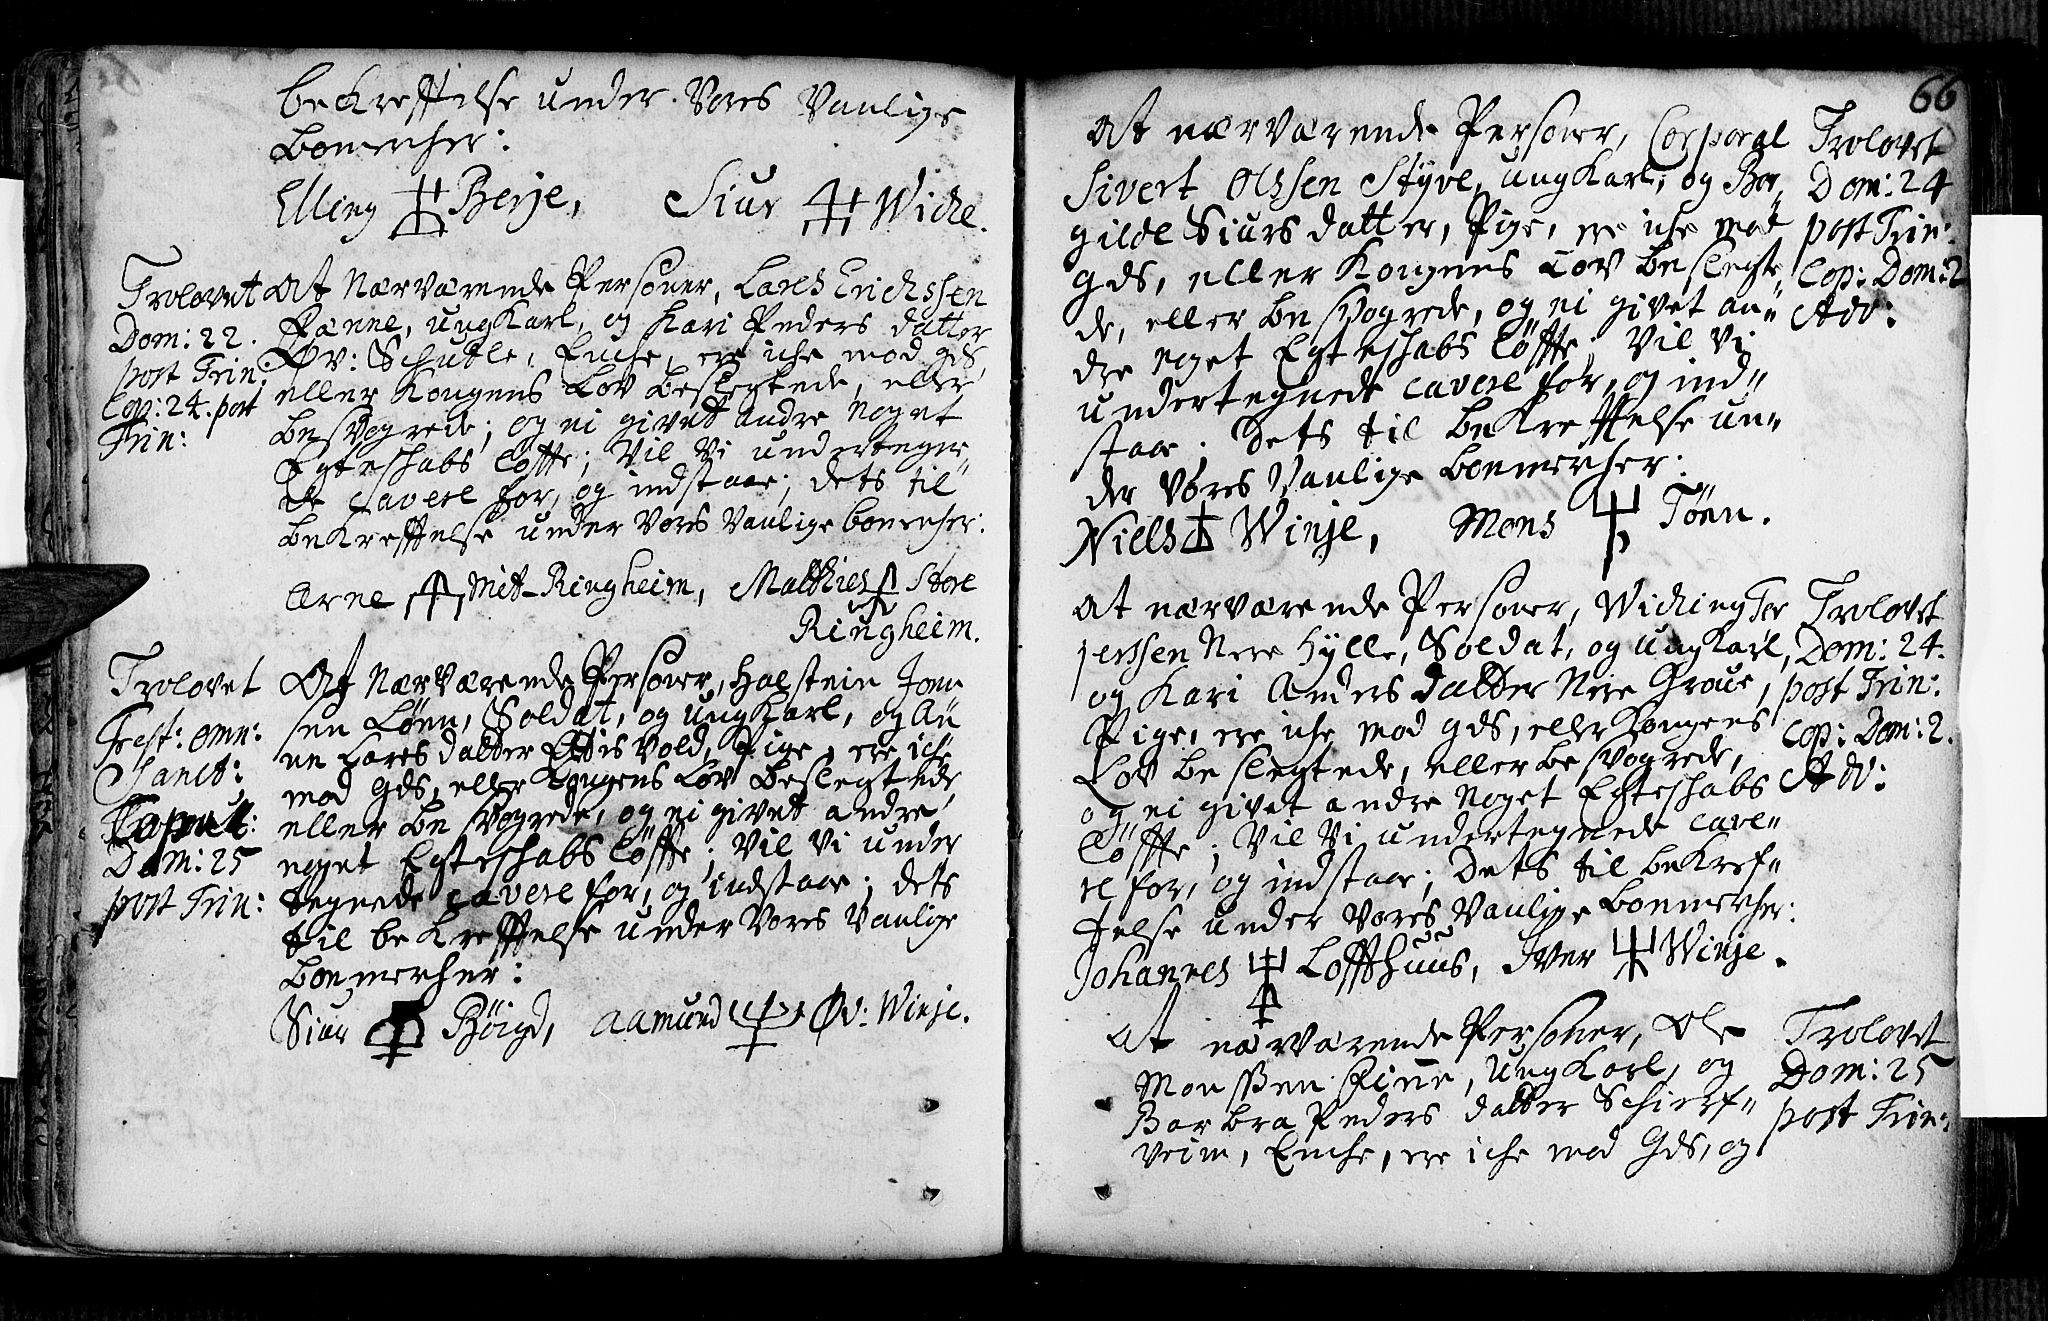 bekreffelse under vores vanlige
bomercher:
Elling Berje, Siur Wichl.
Trolovet
Dom: 22.
post Trin:
Cop: 24. post
Trin:
At Nærværende Personer, Lares Erichssen
Fænne, ungKarl, og Kari Peders datter
Øv: Schutle, Enche, ere iche mod gds,
eller Kongens Lov beslegtede, eller
besvogrede; og ei givet andre noget
Egteschabs løffte; Vil vi undertegne
de cavere for, og indstaae; dets til
bekreffelse under vores vanlige bomercher:
Arne Mit-Ringheim, Matthies Store
Ringheim.
Trolovet
Fest: omn:
Sanct:
Copul:
Dom: 25
post Trin:
At Nærværende Personer, Halstein Joen
sen Løen, Soldat, og ungKarl, og An
ne Lares datter Ettisvold, Pige, ere iche
mod gds, eller Kongens Lov beslegtede
eller besvogrede, og ei givet andre
noget Egteschabs løffte; Vil vi under
tegnede cavere for, og indstaae; dets
til bekreffelse under vores vanlige
bomercher:
Siur Bøigd, Aamund Øv: Winje.
66
At nærværende Personer, Corporal
Sivert Olssen Styve, ungKarl, og Bor
gilde Siurs datter, Pige, ere iche mod
gds, eller Kongens Lov beslegte
de, eller besvogrede, og ei givet an"
dre noget Egteschabs løffte; Vil vi
undertegnede cavere for, og ind"
staae; Dets til bekreffelse un"
der vores vanlige bomercher:
Niels Winje, Mons Tøen.
Trolovet
Dom: 24
post Trin:
Cop: Dom: 2
Adv:
At nærværende Personer, Wiching Tor
jerssen Nere Hylle, Soldat, og ungKarl,
og Kari Anders datter Nere Groue,
Pige, ere iche mod gds, eller Kongens
Lov beslegtede, eller besvogrede,
og ei givet andre noget Egteschabs
løffte; Vil vi undertegnede cave"
re for, og indstaae; Dets til bekref"
felse under vores vanlige bomercher:
Johannes Loffthuus, Iver Winje.
Trolovet
Dom: 24.
post Trin:
Cop: Dom: 2.
Adv:
At nærværende Personer, Ole
Monssen Finne, ungKarl, og
Barbra Peders datter Schierf"
veim, Enche, ere iche mod Gds, og
Trolovet
Dom: 25
post Trin: